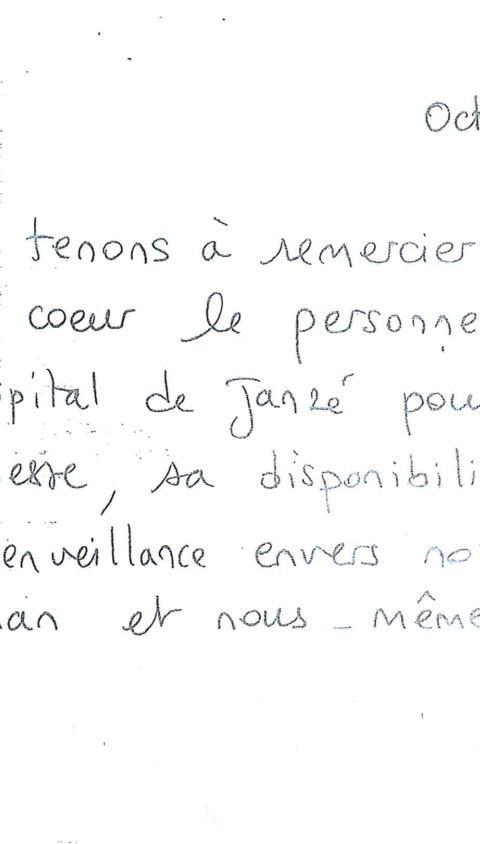 Oct
tenons à remercier
coeur le personne
pital de Janzé pou
esse, sa disponibili
enveillance envers no
an et nous-même